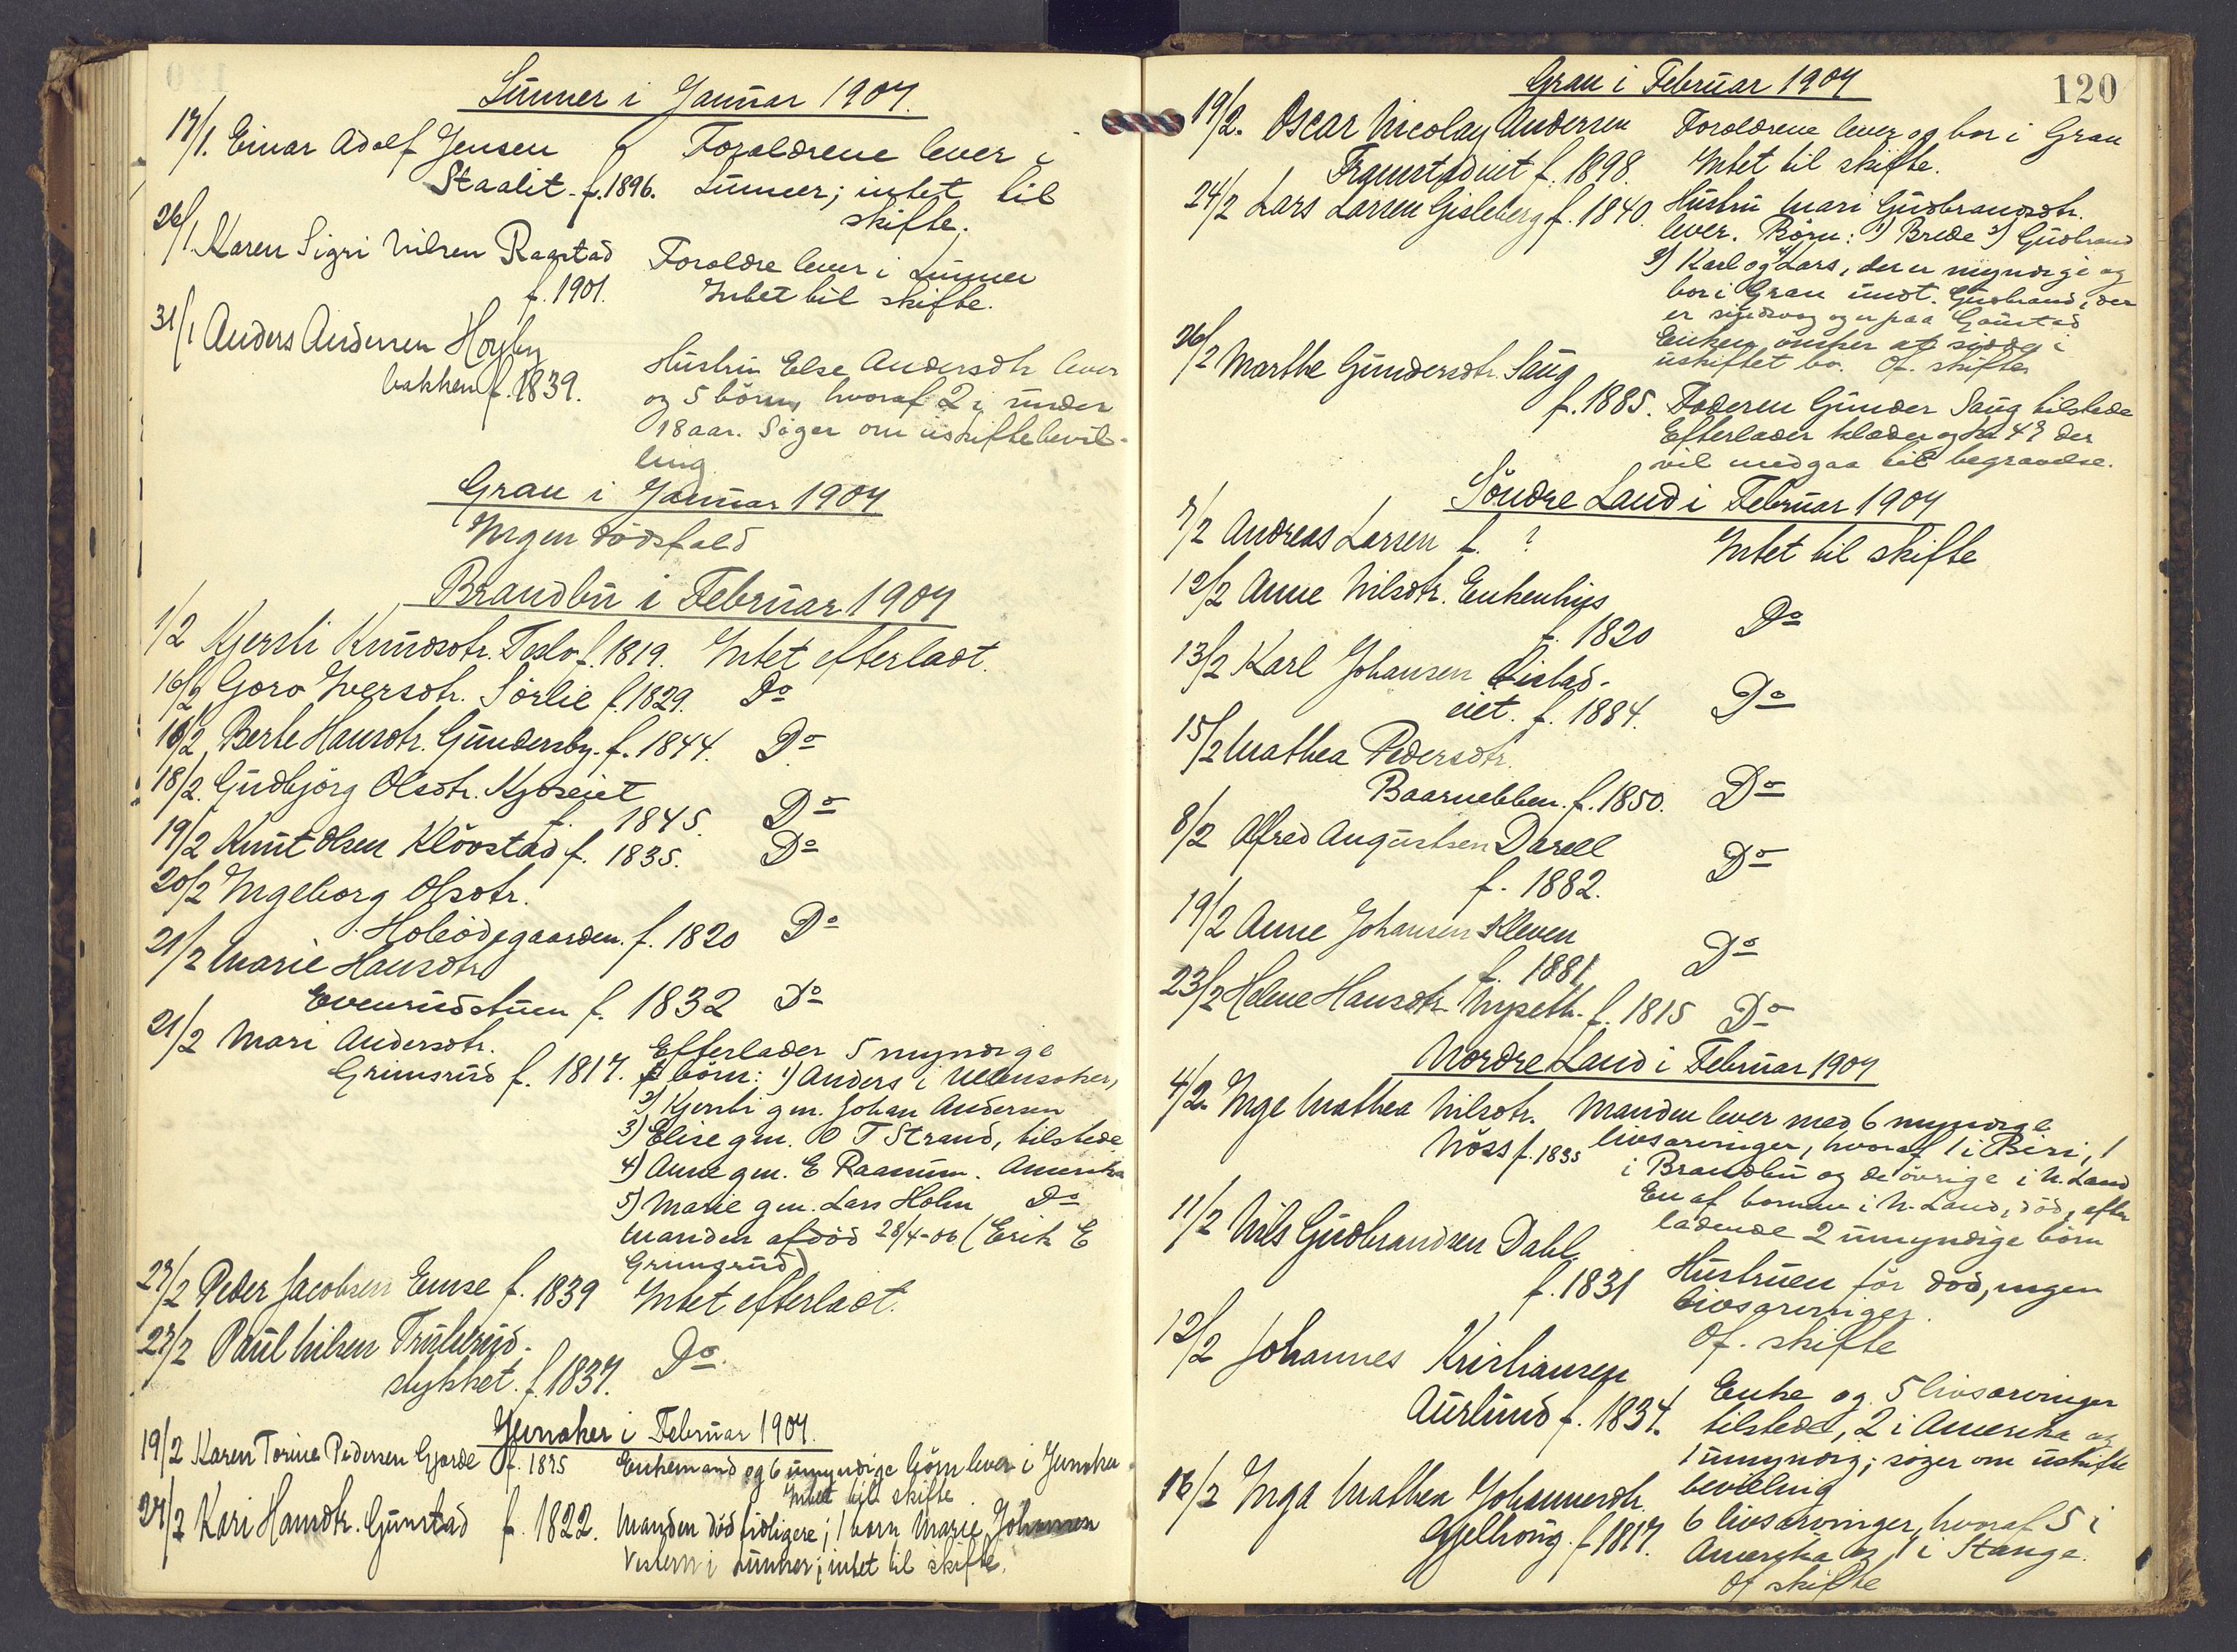 Lunner i Januar 1907.
17/1. Einar Adolf Jensen Forældrene lever i
Staalit - f. 1896. Lunner; intet til
skifte.
26/1. Karen Sigri Nilsen Raastad Forældre lever i Lunner
f. 1901. Intet til skifte.
31/1 Anders Andersen Høyby
bakken f. 1839. Hustru Else Andersdtr lever
og 5 börn, hvoraf 2 i under
18 aar. Söger om uskiftebevil-
ling
Gran i Januar 1907
Ingen dödsfald
Brandbu i Februar 1907
1/2 Kjersti Knudsdtr. Teslo f. 1819. Intet efterladt.
16/2 Goro Iversdtr. Sörlie f. 1829. Do
16/2 Berte Hansdtr. Gundersby. f. 1844. Do
18/2. Gudbjörg Olsdtr. Kjoseiet
f. 1845. Do
19/2 Knut Olsen Klövstad f. 1835. Do
20/2 Ingeborg Olsdtr.
Holeödegaarden. f. 1820 Do
21/2 Marie Hansdtr
Evenrudstuen f. 1832 Do
21/2 Mari Andersdtr.
Grimsrud f. 1817. Efterlader 5 myndige
börn: 1) Anders i Ullensaker,
2) Kjersti gm. Johan Andersen
3) Elise gm. O T Strand, tilstede
4) Anne gm. E Raasum. Amerika
5) Marie gm. Lars Holm Do
Manden afdöd 28/4-06 (Erik E
Grimsrud)
27/2 Peder Jacobsen Emse f. 1839 Intet efterladt.
27/2 Paul Nilsen Trulserud-
stykket. f. 1837. Do.
Jevnaker i Februar 1907.
19/2 Karen Torine Pedersen Gjerde f. 1875 Enkemand og 6 umyndige börn lever i Jevnaker
Intet til skifte.
27/2 Kari Hansdtr. Gunstad f. 1822. Manden död tidligere; 1 barn Marie Johansen
Vestern i Lunner; intet til skifte.
120
Gran i Februar 1907
19/2. Oscar Nicolay Andersen Forældrene lever og bor i Gran
Framstadeiet f. 1898. Intet til skifte.
24/2 Lars Larsen Gisleberg f. 1840. Hustru Mari Gudbrandsdtr.
lever. Börn: 1) Brede 2) Gudbrand
3) Karl og 4) Lars, der er myndige og
bor i Gran undt. Gudbrand, der
er sindsvag og er paa Gaustad
Enken önsker at sidde i
uskiftet bo. Of. skifte
26/2 Marthe Gundersdtr. Saug
f. 1885. Faderen Gunder Saug tilstede
Efterlader klæder og der
vil medgaa til begravelse.
Söndre Land i Februar 1907
7/2 Andreas Larsen f. ? Intet til skifte
12/2 Anne Nilsdtr. Enkenhus
f. 1820 Do
13/2 Karl Johansen
eiet. f. 1884. Do
15/2 Mathea Pedersdtr.
Baarnebben. f. 1850. Do
8/2 Alfred Augustsen Darell
f. 1882. Do
19/2 Anne Johansen Kleven
f. 1881 Do
23/2 Helene Hansdtr. Nyseth. f. 1815 Do
Nordre Land i Februar 1907
4/2. Inge Mathea Nilsdtr. Manden lever med 6 myndige
Nöss f. 1835 livsarvinger, hvoraf 1 i Biri, 1
i Brandbu og de övrige i N. Land
En af barnene i N. Land, död, efter
ladende 2 umyndige börn
11/2 Nils Gudbrandsen Dahl
f. 1831 Hustruen för död, ingen
livsarvinger.
Of. skifte
12/2 Johannes Kristiansen
Aurlund f. 1834. Enke og 5 livsarvinger
tilstede, 2 i Amerika og
1 umyndig; söger om uskifte
bevilling
16/2 Inga Mathea Johannesdtr.
Gjelhoug. f. 1817. 6 livsarvinger, hvoraf 5 i
Amerika og 1 i Stange.
Of skifte